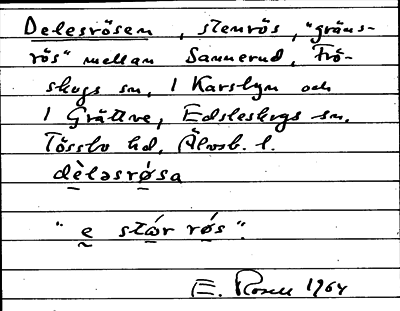 Delesrösen, stenrös, "gräns-
rös" mellan Sannerud, Frö-
skogs sn, 1 Karsbyn och
1 Grättve, Edsleskogs sn.
Tössbo hd, Älvsb. l.
dèləsrǿsa
"e stór rǿs".
E. Rosell 1964